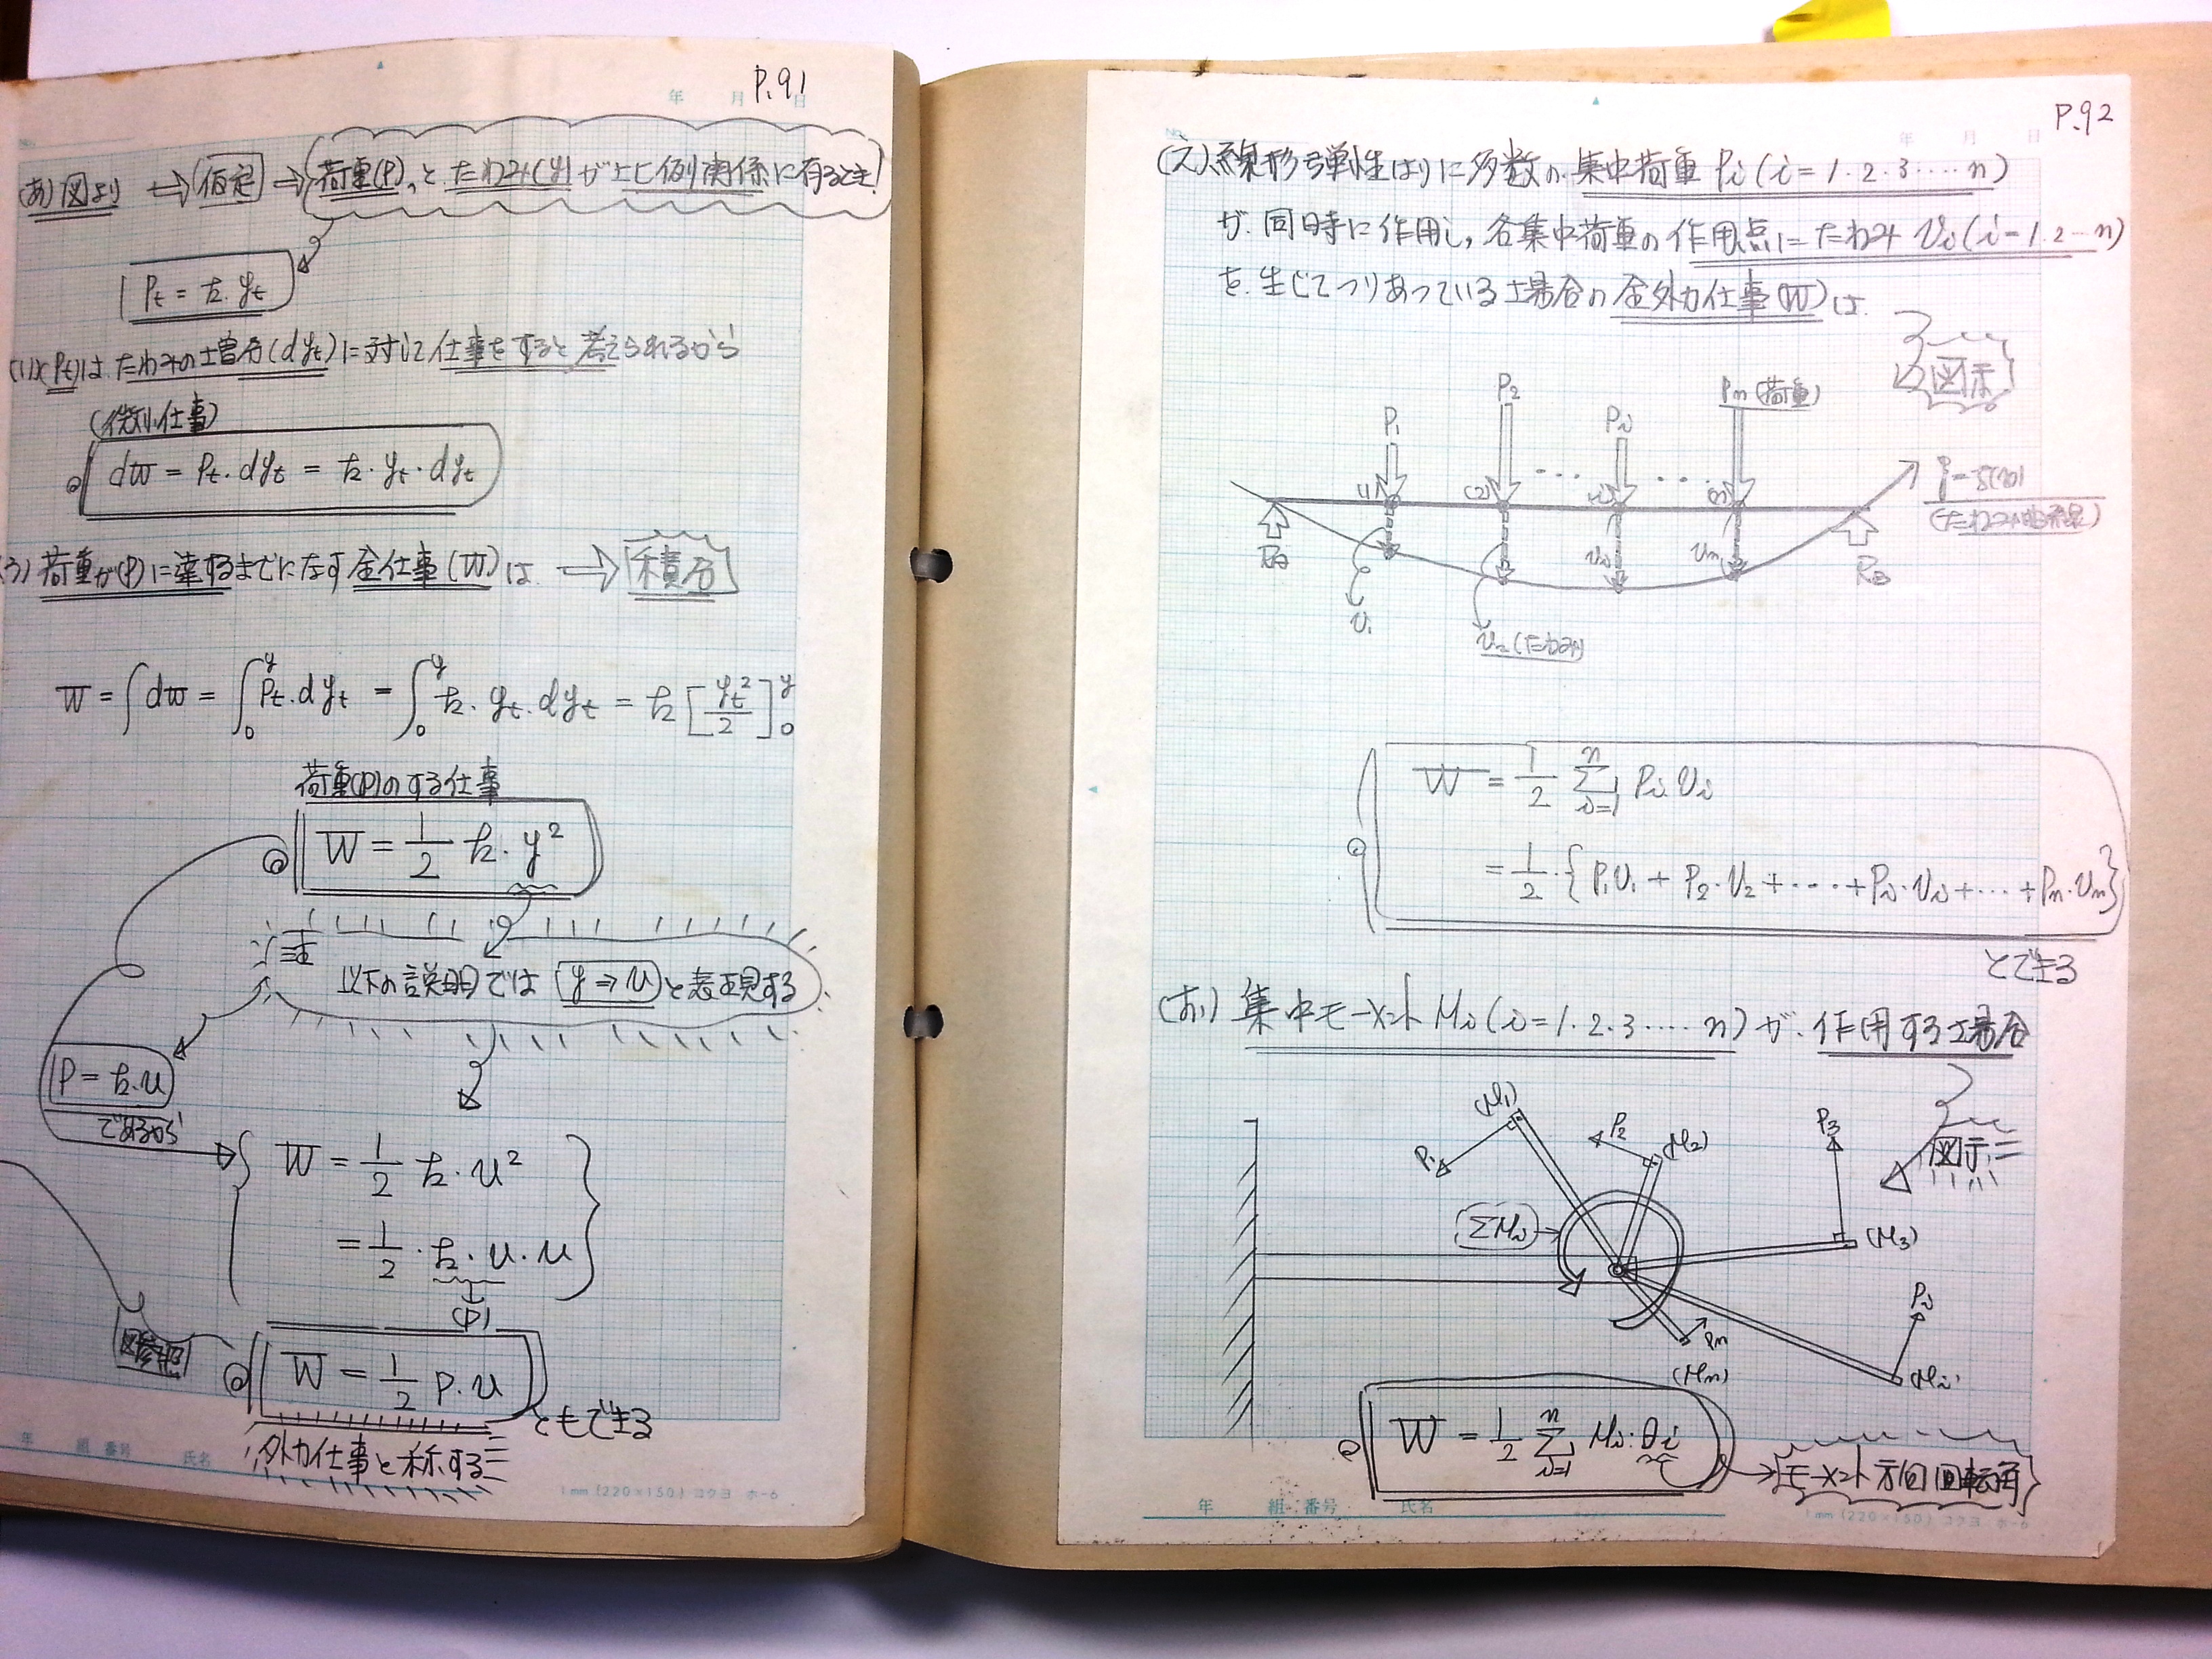 P.91
年 月 日
(あ)図より ⇒ 仮定 ⇒ 荷重(P)、と たわみ(y)が比例関係に有るとき!
Pt = k・yt
(い)(Pt)は たわみの増分(dyt)に対して仕事をすると考えられるから
(微小仕事)
dW = Pt・dyt = k・yt・dyt
(う) 荷重が(P)に達するまでになす全仕事(W)は ⇒ 積分
W = ∫dW = ∫₀^y Pt・dyt = ∫₀^y k・yt・dyt = k[yt²/2]₀^y
荷重(P)のする仕事
W = 1/2 k・y²
注
以下の説明では (y⇒u)と表現する
P = k・u
であるから
W = 1/2 k・u²
= 1/2・k・u・u
(P)
図参照
W = 1/2 P・u
ともできる
外力仕事と称する
年 組 番号 氏名
1mm (220×150) コクヨ ホ-6
P.92
No.
年 月 日
(え)線形弾性はりに多数の集中荷重 Pi (i=1.2.3.…n)
が、同時に作用し、各集中荷重の作用点にたわみ vi (i=1.2…n)
を、生じてつりあっている場合の全外力仕事(W)は
図示
P1 P2 Pi Pn (荷重)
(1) (2) … (i) … (n)
(たわみ曲線)
RA v1 v2 (たわみ) vi vn RB
W = 1/2 Σ(i=1→n) Pi vi
= 1/2・{P1v1 + P2・v2 + … + Pi・vi + … + Pn・vn}
とできる
(お) 集中モーメント Mi (i=1.2.3.…n)が、作用する場合
図示
(M1) P1
P2 (M2)
P3
(M3)
ΣMi
Pi
(Mi)
Pn
(Mn)
W = 1/2 Σ(i=1→n) Mi・θi
モーメント方向回転角
年 組 番号 氏名
1mm (220×150) コクヨ ホ-6